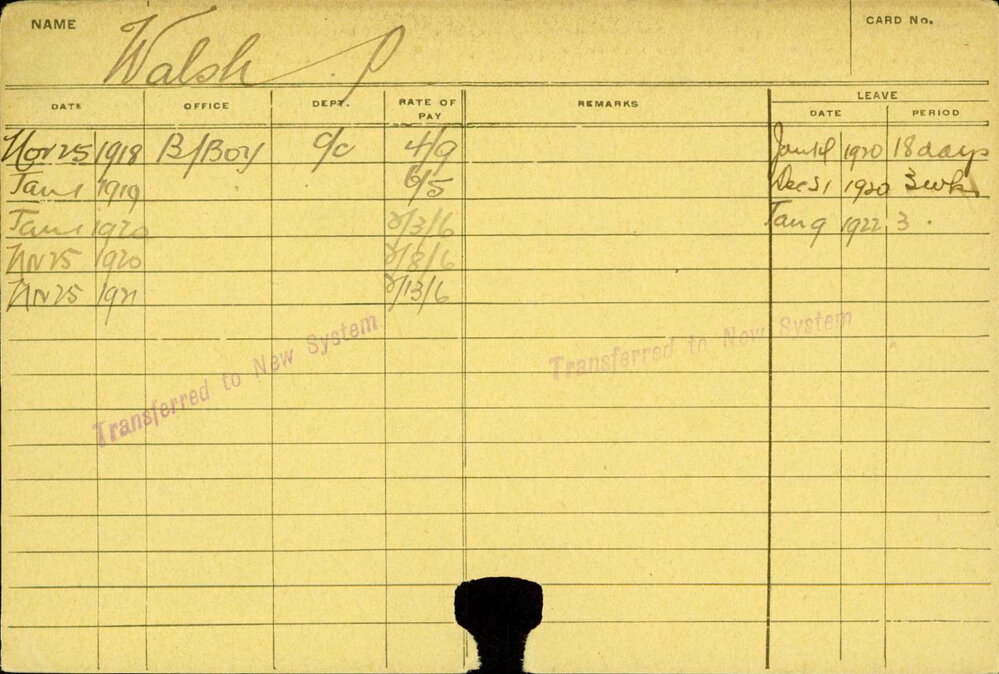 NAME Walsh P CARD No.
LEAVE
DATE OFFICE DEPT. RATE OF PAY REMARKS DATE PERIOD
Nov 25 1918 B/Boy O/C 4/9 Jan 14 1920 18 days
Jan 1 1919 6/5 Dec 31 1920 3 wks
Jan 1 1920 /3/6 Jan 9 1922 3 .
Nv 25 1920 /8/6
Nv 25 1921 /13/6
Transferred to New System
Transferred to New System